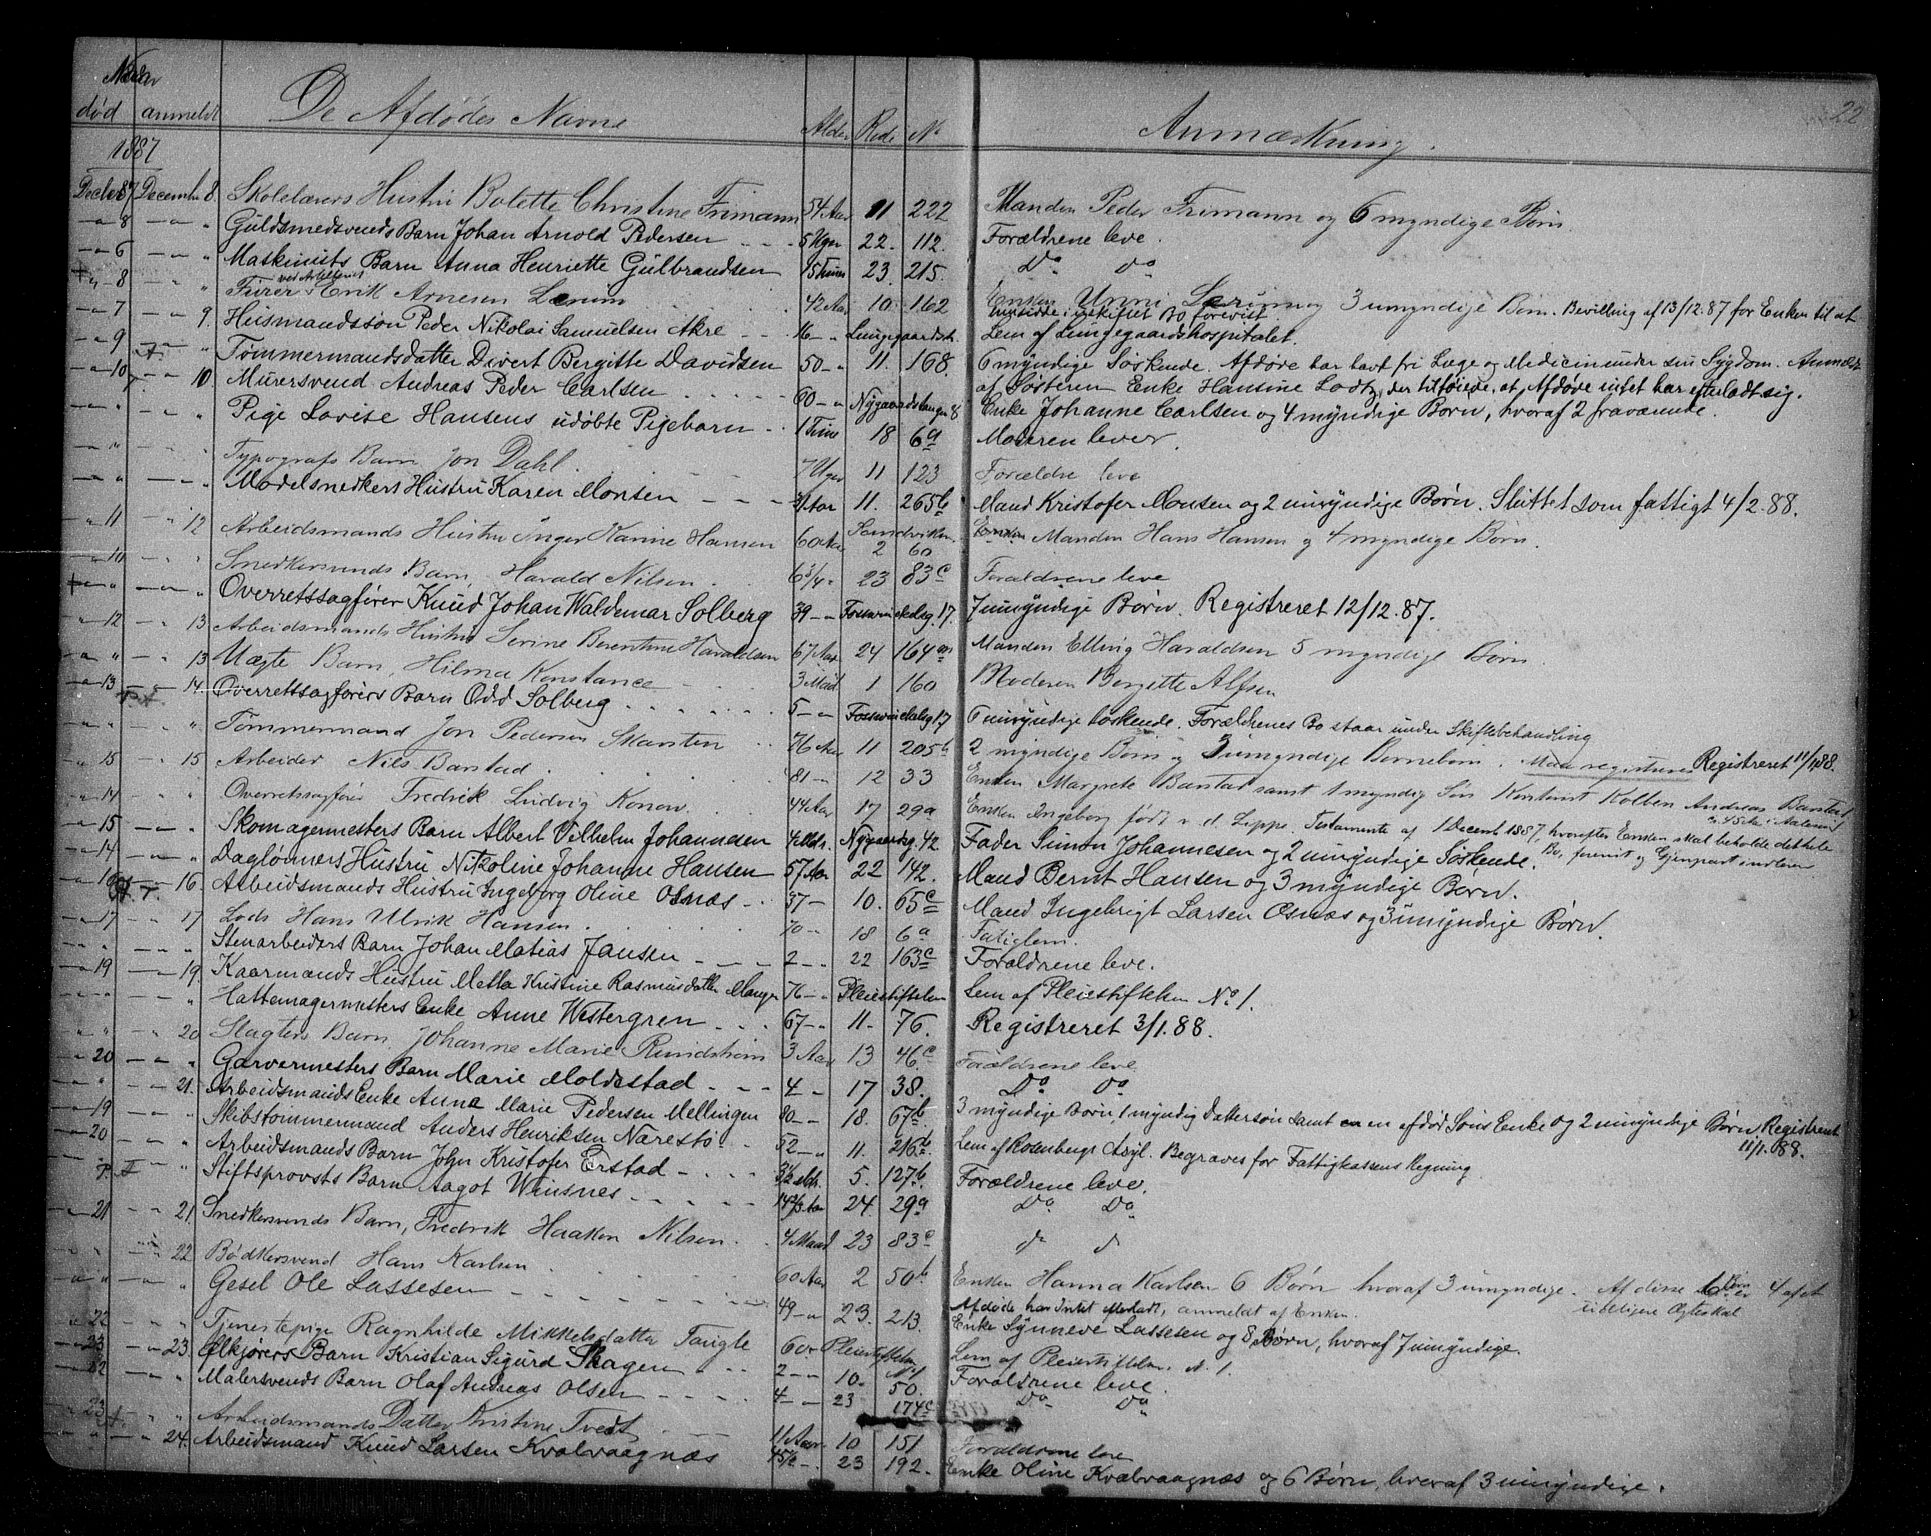 22
Naar
død anmeldt De Afdødes Navne Alder Rode No Anmærkning.
1887
Decbr 7 December 8. Skolelærers Hustru Bolette Christine Frimann 54 Aar 11 222 Manden Peder Frimann og 6 myndige Børn.
-"- 8 -"- " Guldsmedsvends Barn Johan Arnold Pedersen 5 Uger 22. 112. Forældrene leve.
-"- 6 " Maskinists Barn Anna Henriette Gulbrandsen 15 Timer 23. 215. Do Do
-"- 8 " Furer ved Artilleriet Erik Arnesen Lerum 42 Aar 10 162 Enken Unni Lerum og 3 umyndige Børn. Bevilling af 13/12.87 for Enken til at
hensidde i uskiftet Bo forevist.
-"- 7 9. Husmandssøn Peder Nikolai Samuelsen Akre 16 -"- Lungegaardsh. Lem af Lungegaardshospitalet.
-"- 9 " Tømmermandsdatter Divert Bergitte Davidsen 50 -"- 11. 168. 6 myndige Søskende. Afdøde har havt fri Læge og Medicin under sin Sygdom. Anmeldt
af Søsteren Enke Hansine Lodtz, der tilføiede, at Afdøde intet har efterladt sig.
-"- 10 -"- 10. Murersvend Andreas Peder Carlsen 60 -"- Nygaardstangen 8 Enke Johanne Carlsen og 4 myndige Børn, hvoraf 2 fraværende.
-"- " -"- " Pige Lovise Hansens udøbte Pigebarn 1 Time 18 6a Moderen lever.
-"- " -"- " Typografs Barn Jon Dahl. 7 Uger 11 123 Forældre leve
-"- " -"- " Modelsnedkers Hustru Karen Monsen Aar 11. 265b Mand Kristofer Monsen og 2 umyndige Børn. Sluttet som fattigt 4/2.88.
-"- 11 -"- 12 Arbeidsmands Hustru Inger Karine Hansen 60 Aar Sandviken 2 60 Manden Hans Hansen og 4 myndige Børn.
-"- 10 -"- " Snedkersvends Barn, Harald Nilsen 6 3/4 " 23 83c Forældrene leve
-"- " -"- " Overretssagfører Knud Johan Waldemar Solberg 39 -"- Fosswinckelsg. 17. 7 umyndige Børn. Registreret 12/12.87.
-"- 12 -"- 13 Arbeidsmands Hustru Serine Berentine Haraldsen 67 Aar 24 164 Manden Elling Haraldsen 5 myndige Børn.
-"- " -"- 13 Uægte Barn, Hilma Konstance 3 Maad 1 160 Moderen Bergitte Alfsen
-"- 13 -"- 14. Overretssagførers Barn Odd Solberg 5 -"- Fosswinckelsg. 17 6 umyndige Søskende. Forældrenes Bo staar under Skiftebehandling
" " " Tømmermand Jon Pedersen Skarsten 76 Aar 11 205b 2 myndige Børn og 3 umyndige Børnebørn. Registreret 11/1.88.
-"- 15 -"- 15 Arbeider Nils Barstad 81 -"- 12 33 Enken Margrete Barstad samt 1 myndig Søn Kontorist Kolben Andreas Barstad
-"- 14 " " Overretssagfører Fredrik Ludvig Konow. 44 Aar 17 29a Enken Ingeborg født v. d. Lippe. Testamente af 1 Decemb 1887, hvorefter Enken skal beholde det hele
Bo, forevist og Gjenpart indlevr
-"- 15 -"- " Skomagermesters Barn Albert Vilhelm Johannesen 4 Mdr. Nygaardsg. 42 Fader Simon Johannesen og 2 umyndige Søskende.
-"- 14 -"- " Daglønners Hustru Nikoline Johanne Hansen 57 Aar 22 142. Mand Bernt Hansen og 3 myndige Børn.
-"- 16 16. Arbeidsmands Hustru Ingeborg Oline Osnæs 37 - 10. 65c Mand Ingebrigt Larsen Osnæs og 3 umyndige Børn.
-"- 17 -"- 17 Lods Hans Ulrik Hansen. 70 -"- 18 6a Fatiglem.
" " " Stenarbeiders Barn Johan Matias Jansen 2 -"- 22 163c Forældrene leve.
-"- 19 -"- 19. Kaarmands Hustru Metta Kristine Rasmusdatter Manger 76 -"- Pleiestiftelsen Lem af Pleiestiftelsen No 1.
-"- " -"- " Hattemagermesters Enke Anne Westergren 67 -"- 11. 76. Registreret 3/1.88.
" " -"- 20 Slagters Barn, Johanne Marie Rundstrøm 3 Aar 13 46c Forældrene leve
-"- 20 -"- " Garvermesters Barn Marie Moldestad 4 - 17 38. Do Do
-"- " -"- 21. Arbeidsmands Enke Anna Marie Pedersen Mellingen 80 -"- 18. 67b 3 myndige Børn, 1 myndig Dattersøn samt en afdød Søns Enke og 2 umyndige Børn Registreret
11/1.88.
-"- 19 -"- " Skibstømmermand Anders Henriksen Nærestø 52 -"- 11. 216b Lem af Rosenbergs Asyl. Begraves for Fattigkassens Regning
-"- 20 -"- " Arbeidsmands Barn John Kristofer Erstad 3 1/2 Mdr. 5. 127b. Forældrene leve.
" Stiftsprovsts Barn Aagot Winsnes Aar 24. 29a Do Do
-"- 21 -"- 21 Snedkersvends Barn, Fredrik Haakon Nilsen 4 Maad 23 83c do do
-"- " 22 Bødkersvend Hans Karlsen 60 Aar 2 50b Enken Hanna Karlsen 6 Børn hvoraf 3 umyndige. Af disse 6 Børn er 4 af et
tidligere Ægteskab
Afdøde har Intet efterladt, anmeldt af Enken.
" " -"- " Gesel Ole Lassesen 49 -"- 23. 213. Enke Synneve Lassesen og 8 Børn, hvoraf 7 umyndige.
-"- 22 Tjenestepige Ragnhilde Mikkelsdatter Taugle 60 -"- Pleiestiftelsen No 1 Lem af Pleiestiftelsen No. 1.
-"- 23 -"- 23. Ølkjørers Barn Kristian Sigurd Skagen 2 -"- 10. 50. Forældrene leve.
-"- 22 -"- " Malersvends Barn Olaf Andreas Olsen 4 -"- 23 174c Do Do
-"- 23 " " Arbeidsmands Datter Kristine Tvedt 11 Aar 10 151 Forældrene leve
24. Arbeidsmand Knud Larsen Kvalvaagnæs 45 1/2 -"- 23 192. Enke Oline Kvalvaagnæs og 6 Børn, hvoraf 3 umyndige.